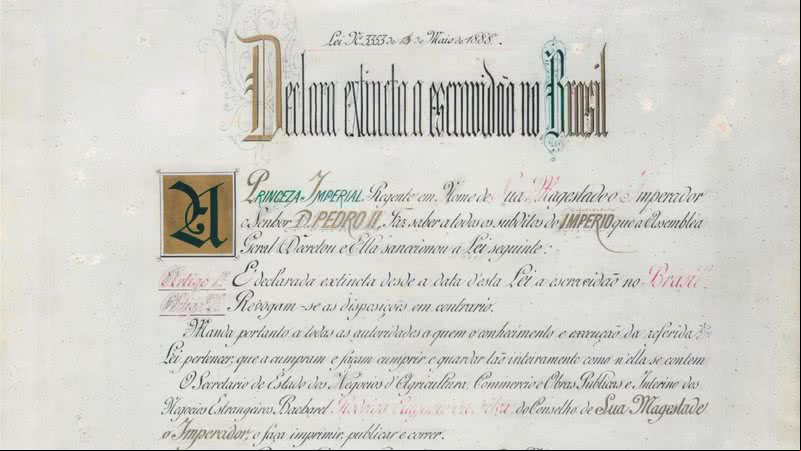 Lei Nº 3353 de 13 de Maio de 1888.
Declara extincta a escravidão no Brasil
A PRINCEZA IMPERIAL Regente em Nome de Sua Magestade o Imperador
o Senhor D. PEDRO II, Faz saber a todos os subditos do IMPERIO que a Assembléa
Geral Decretou e Ella sanccionou a Lei seguinte:
Artigo 1º E declarada extincta desde a data d'esta Lei a escravidão no Brasil.
Artigo 2º Revogam-se as disposições em contrario.
Manda portanto a todas as autoridades a quem o conhecimento e execução da referida
Lei pertencer, que a cumpram e façam cumprir e guardar tão inteiramente como n'ella se contem
O Secretario de Estado dos Negocios d'Agricultura, Commercio e Obras Publicas e Interino dos
Negocios Estrangeiros, Bacharel Rodrigo Augusto da Silva, do Conselho de Sua Magestade
o Imperador, o faça imprimir, publicar e correr.